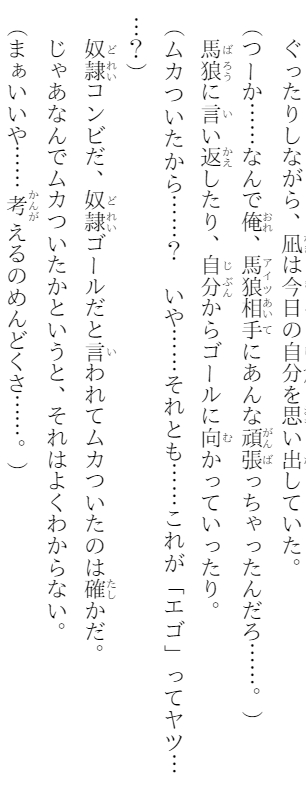 ぐったりしながら、凪は今日の自分を思い出していた。
(つーか……なんで俺、馬狼相手にあんな頑張っちゃったんだろ……。)
馬狼に言い返したり、自分からゴールに向かっていったり。
(ムカついたから……? いや……それとも……これが「エゴ」ってヤツ…
…?)
奴隷コンビだ、奴隷ゴールだと言われてムカついたのは確かだ。
じゃあなんでムカついたかというと、それはよくわからない。
(まぁいいや……考えるのめんどくさ……。)